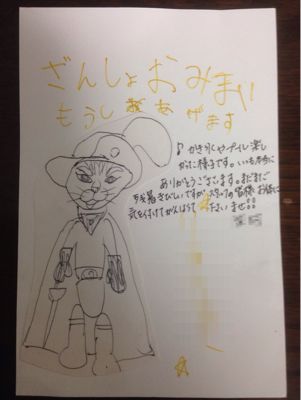 ざんしょおみまい
もうしあげます
♪かき氷やプール楽し
かった様子です。いつも本当に
ありがとうございます。まだまだ
残暑きびしいですがスタッフの皆様 お体に
気を付けてがんばって下さいませ!!